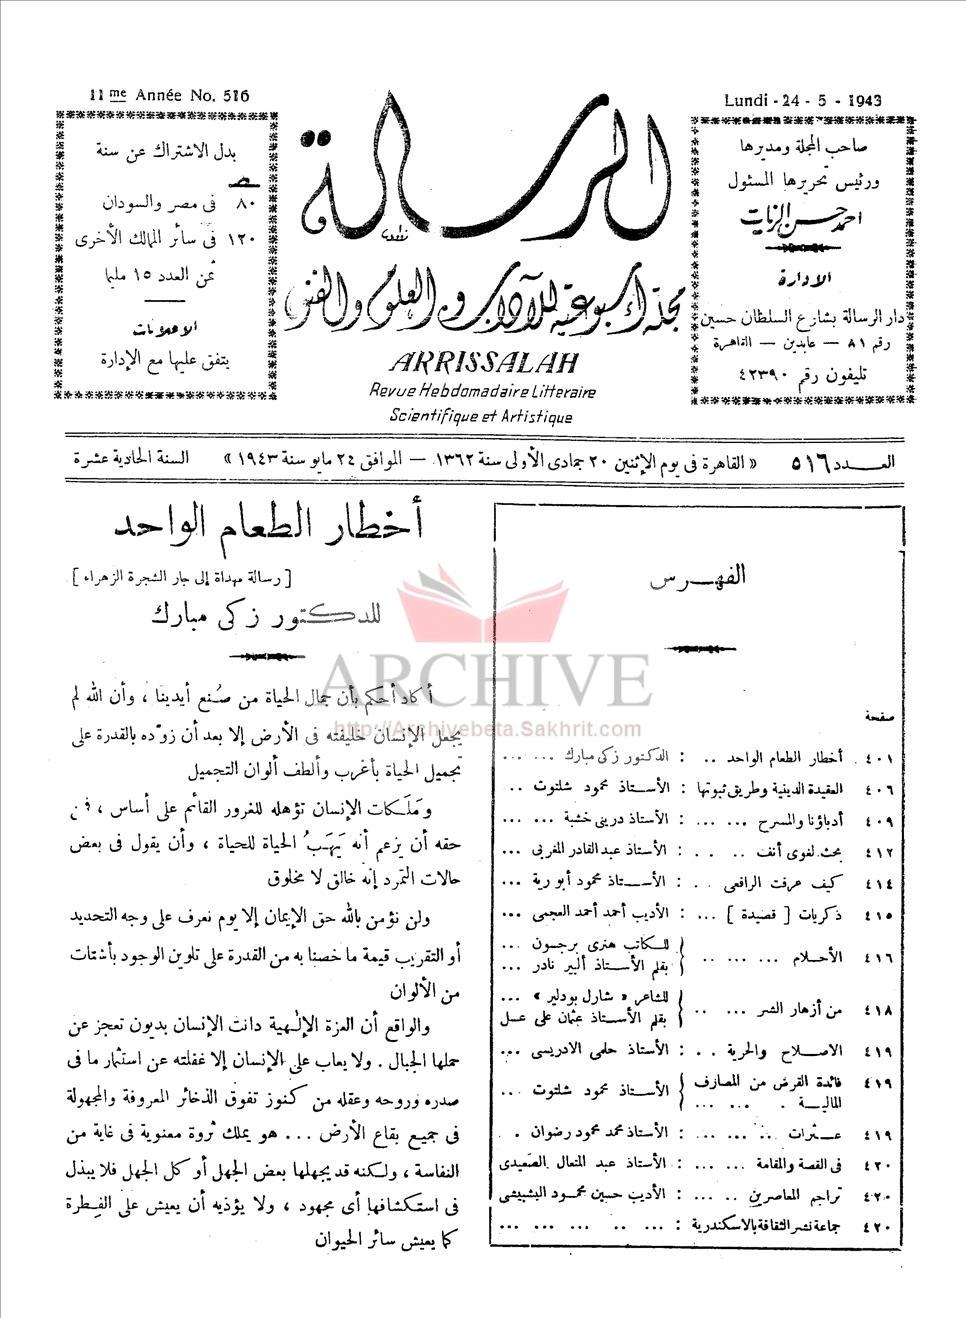 11me Année No. 516
Lundi - 24 - 5 - 1943
بدل الاشتراك عن سنة
ص
٨٠ فى مصر والسودان
١٢٠ فى سائر الممالك الأخرى
ثمن العدد ١٥ مليما
الاعلانات
يتفق عليها مع الإدارة
الرسالة
مجلة أسبوعية للآداب والعلوم والفنون
ARRISSALAH
Revue Hebdomadaire Litteraire
Scientifique et Artistique
صاحب المجلة ومديرها
ورئيس تحريرها المسئول
احمد حسن الزيات
الادارة
دار الرسالة بشارع السلطان حسين
رقم ٨١ — عابدين — القاهرة
تليفون رقم ٤٢٣٩٠
العـدد ٥١٦ « القاهرة فى يوم الإثنين ٢٠ جمادى الأولى سنة ١٣٦٢ — الموافق ٢٤ مايو سنة ١٩٤٣ » السنة الحادية عشرة
الفهـرس
صفحة
٤٠١ أخطار الطعام الواحد .. : الدكتور زكى مبارك ... ...
٤٠٦ العقيدة الدينية وطريق ثبوتها : الأستاذ محمود شلتوت ..
٤٠٩ أدباؤنا والمسرح ... ... : الأستاذ درينى خشبة ... ...
٤١٢ بحث لغوى أنف .. . . : الأستاذ عبد القادر المغربى ...
٤١٤ كيف عرفت الرافعى . . : الأســتاذ محمود أبو رية ...
٤١٥ ذكريات [ قصيدة ] ... : الأديب أحمد أحمد العجمى ...
٤١٦ الأحلام ... ... .. { للـكاتب هنرى برجسون ...
بقلم الأستاذ ألبير نادر ...
٤١٨ من أزهار الشر ... .. { للشاعر « شارل بودلير » ...
بقلم الأستاذ عثمان على عسل
٤١٩ الاصلاح والحرية . . : الأستاذ حلمى الادريسى ...
٤١٩ فائدة القرض من المصارف { الأستاذ محمود شلتوت ...
المالية . ... ...
٤١٩ عــثرات .. ... ... : الأستاذ محمد محمود رضوان .
٤٢٠ فى القصة والمقامة ... ... : الأستاذ عبد المتعال الصعيدى
٤٢٠ تراجم المعاصرين .. ... : الأديب حسين محمود البشبيشى
٤٢٠ جماعة نشر الثقافة بالاسكندرية : ... ... .. ... ... ...
أخطار الطعام الواحد
[ رسالة مهداة إلى جار الشجرة الزهراء ]
للدكتور زكى مبارك
أكاد أحكم بأن جمال الحياة من صُنع أيدينا ، وأن الله لم
يجعل الإنسان خليفته فى الأرض إلا بعد أن زوّده بالقدرة على
تجميل الحياة بأغرب وألطف ألوان التجميل
ومَلَكات الإنسان تؤهله للغرور القائم على أساس ، فمن
حقه أن يزعم أنه يَهَبُ الحياة للحياة ، وأن يقول فى بعض
حالات التمرد إنه خالق لا مخلوق
ولن نؤمن بالله حق الإيمان إلا يوم نعرف على وجه التحديد
أو التقريب قيمة ما خصنا به من القدرة على تلوين الوجود بأشتات
من الألوان
والواقع أن العزة الإلهية دانت الإنسان بديون تعجز عن
حملها الجبال . ولا يعاب على الإنسان إلا غفلته عن استثمار ما فى
صدره وروحه وعقله من كنوز تفوق الذخائر المعروفة والمجهولة
فى جميع بقاع الأرض ... هو يملك ثروة معنوية فى غاية من
النفاسة ، ولكنه قد يجهلها بعض الجهل أو كل الجهل فلا يبذل
فى استكشافها أى مجهود ، ولا يؤذيه أن يعيش على الفِطرة
كما يعيش سائر الحيوان
ARCHIVE
http://Archivebeta.Sakhrit.com